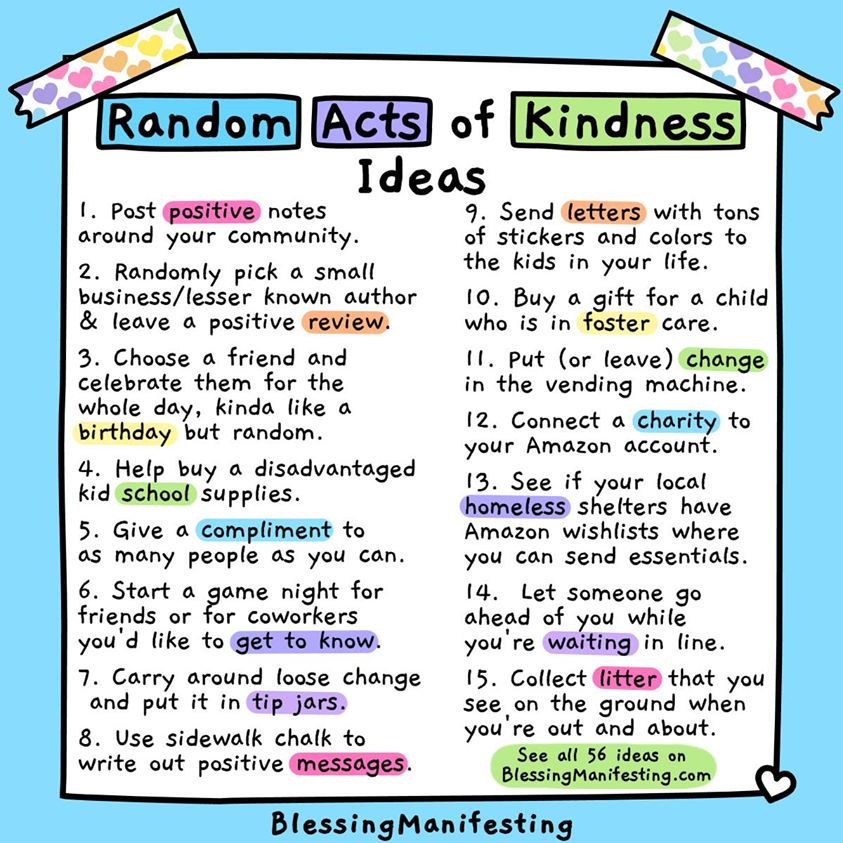 Random Acts of Kindness
Ideas
1. Post positive notes
around your community.
2. Randomly pick a small
business/lesser known author
& leave a positive review.
3. Choose a friend and
celebrate them for the
whole day, kinda like a
birthday but random.
4. Help buy a disadvantaged
kid school supplies.
5. Give a compliment to
as many people as you can.
6. Start a game night for
friends or for coworkers
you'd like to get to know.
7. Carry around loose change
and put it in tip jars.
8. Use sidewalk chalk to
write out positive messages.
9. Send letters with tons
of stickers and colors to
the kids in your life.
10. Buy a gift for a child
who is in foster care.
11. Put (or leave) change
in the vending machine.
12. Connect a charity to
your Amazon account.
13. See if your local
homeless shelters have
Amazon wishlists where
you can send essentials.
14. Let someone go
ahead of you while
you're waiting in line.
15. Collect litter that you
see on the ground when
you're out and about.
See all 56 ideas on
BlessingManifesting.com
BlessingManifesting